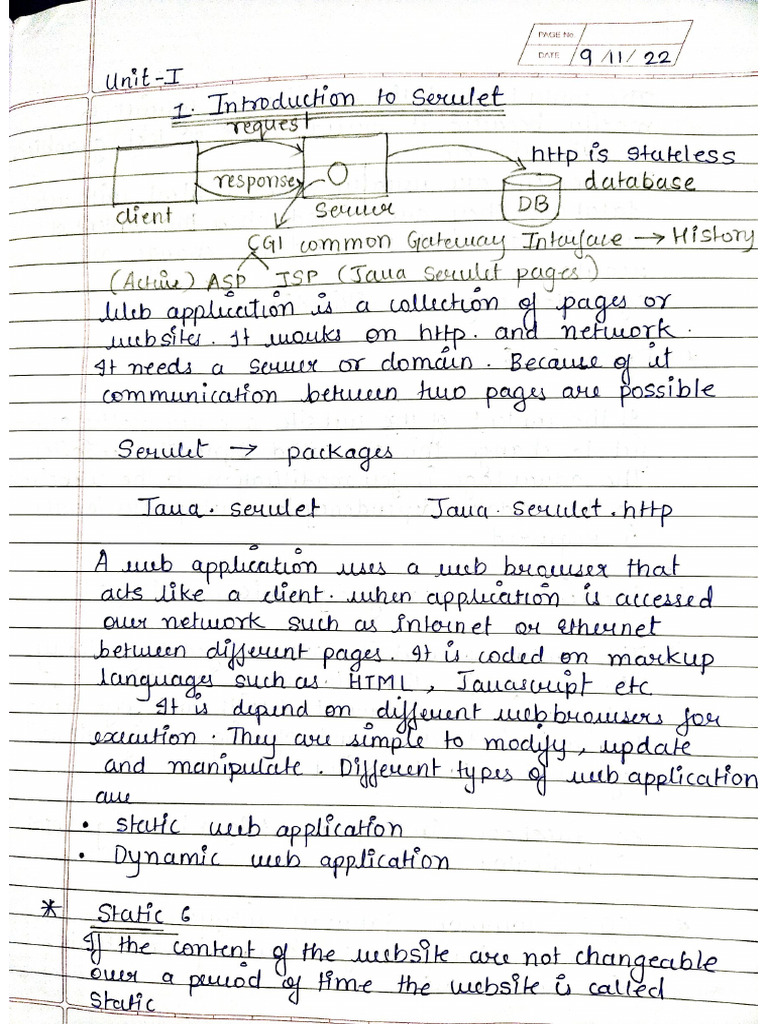 PAGE No.
DATE 9/11/22
Unit-I
1. Introduction to Servlet
request
http is stateless
response
database
client
Server
DB
CGI common Gateway Interface → History
(Active) ASP JSP (Java Servlet pages)
Web application is a collection of pages or
websites. It works on http. and network.
It needs a server or domain. Because of it
communication between two pages are possible
Servlet → packages
Java. servlet Java. servlet. http
A web application uses a web browser that
acts like a client. when application is accessed
over network such as internet or ethernet
between different pages. It is coded on markup
languages such as HTML, Javascript etc
It is depend on different web browsers for
execution. They are simple to modify, update
and manipulate. Different types of web application
are
• static web application
• Dynamic web application
* Static 6
If the content of the website are not changeable
over a period of time the website is called
static